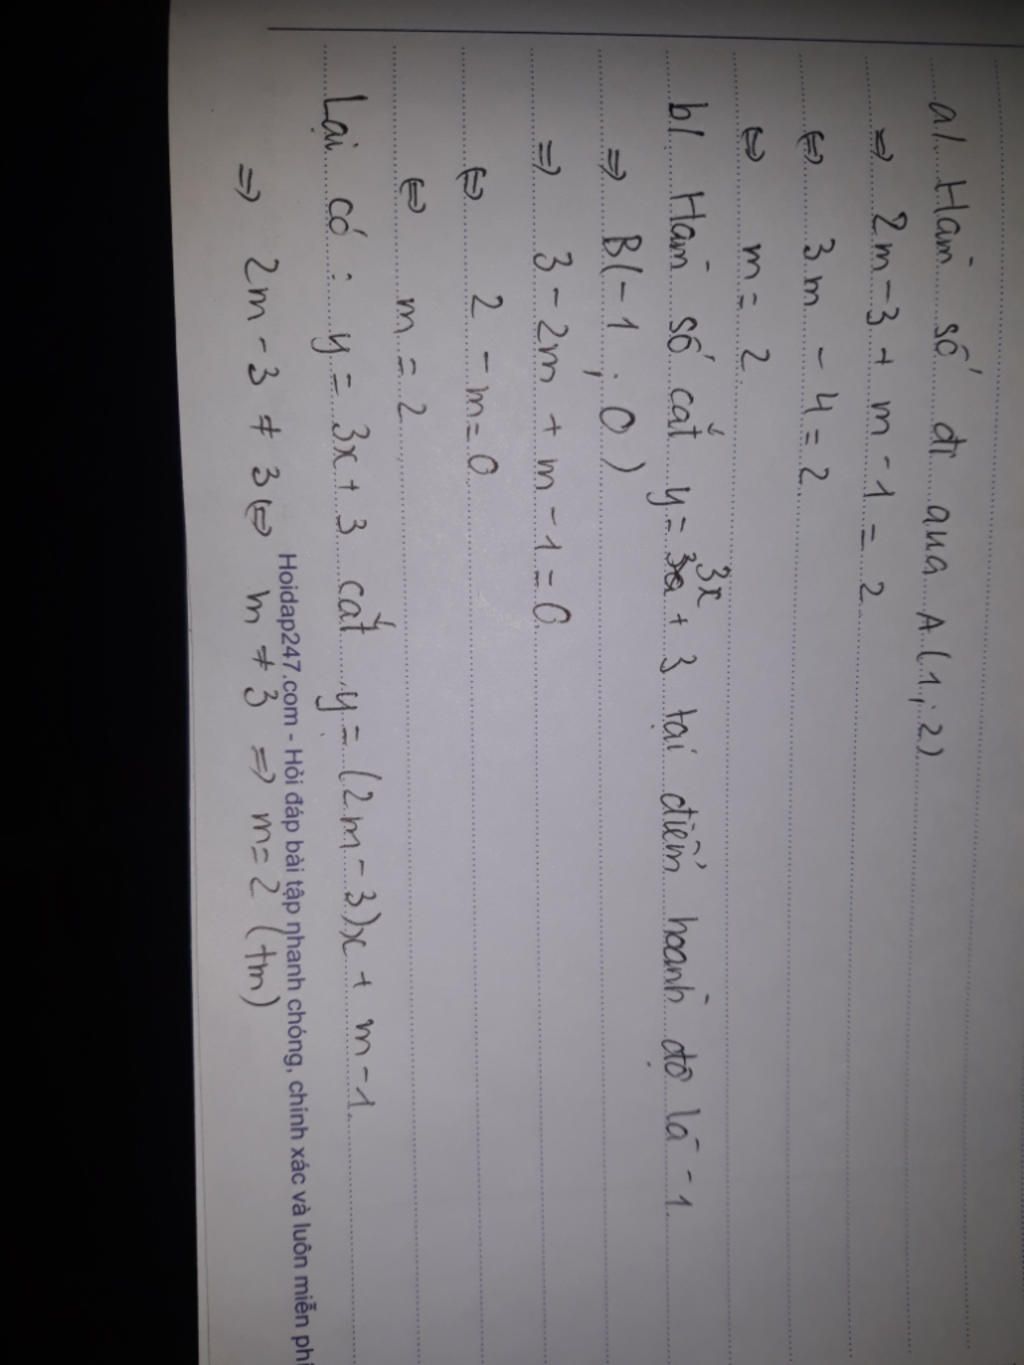 a/. Hàm số đi qua A(1; 2)
⇒ 2m - 3 + m - 1 = 2
⇔ 3m - 4 = 2
⇔ m = 2
b/. Hàm số cắt y = 3x + 3 tại điểm hoành độ là - 1
⇒ B(-1; 0)
⇒ 3 - 2m + m - 1 = 0
⇔ 2 - m = 0
⇔ m = 2
Lại có : y = 3x + 3 cắt y = (2m - 3)x + m - 1
⇒ 2m - 3 ≠ 3 ⇔ m ≠ 3 ⇒ m = 2 (tm)
Hoidap247.com - Hỏi đáp bài tập nhanh chóng, chính xác và luôn miễn phí